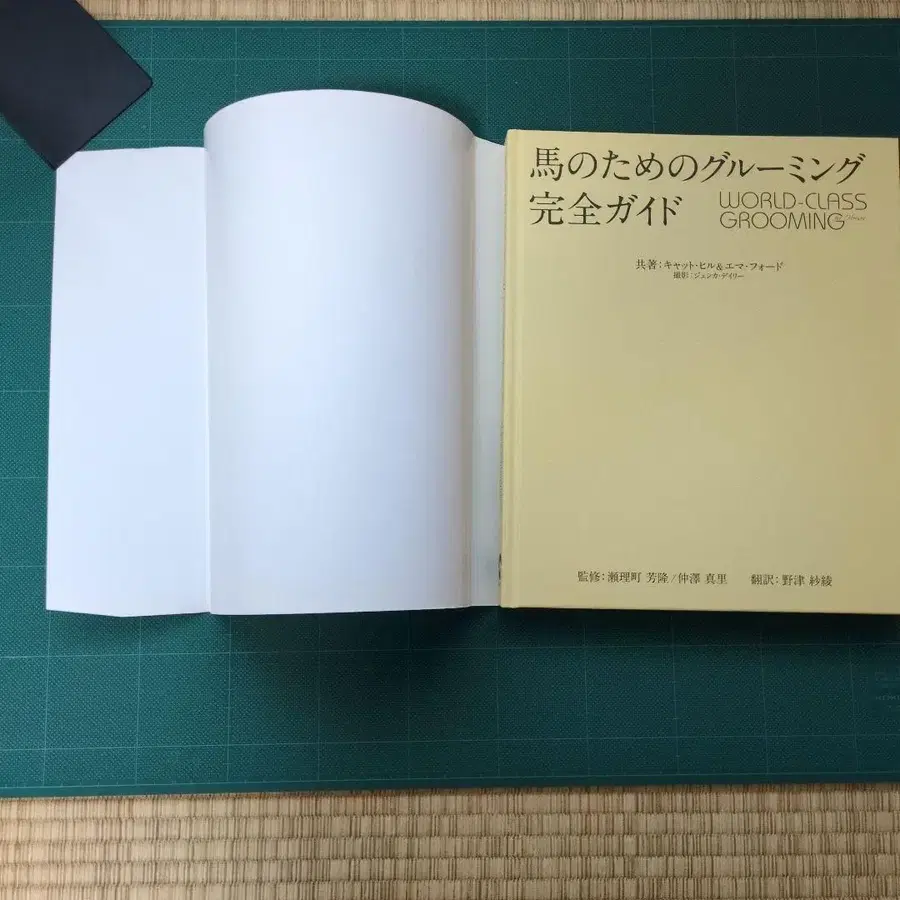 馬のためのグルーミング
完全ガイド
WORLD-CLASS
GROOMING
共著：キャット・ヒル&エマ・フォード
撮影：ジェシカ・デイリー
監修：瀬理町 芳隆/仲澤 真里
翻訳：野津 紗綾